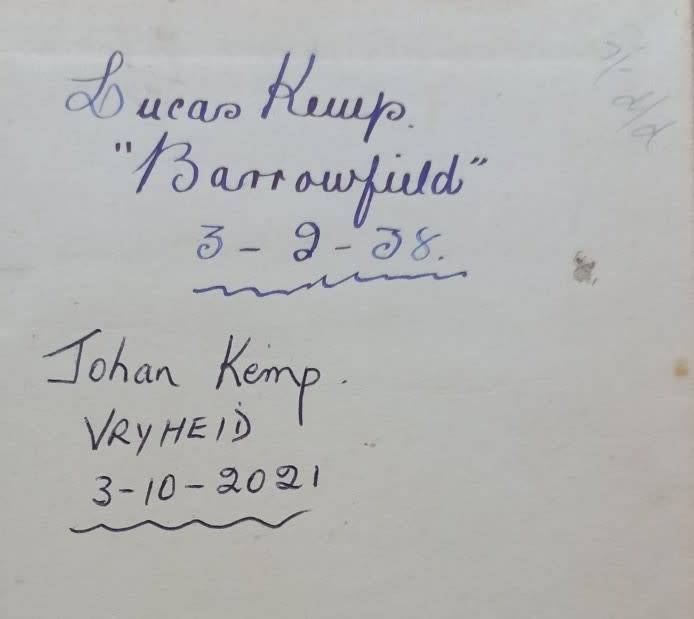 Lucas Kemp.
"Barrowfield"
3 - 2 - 38.
Johan Kemp.
VRYHEID
3-10-2021